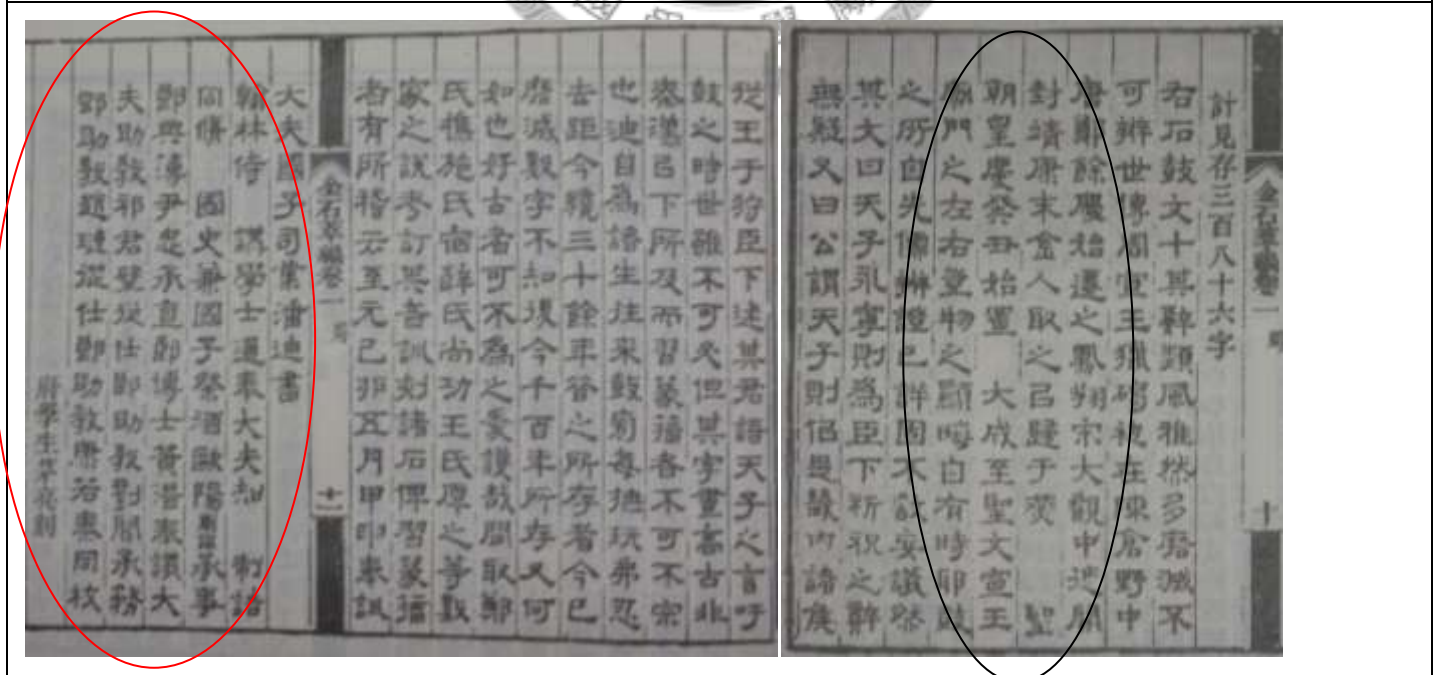 金石萃編卷一
十
計見存三百八十六字
右石鼓文十其辭類風雅然多磨滅不
可辨世傳周宣王獵碣初在陳倉野中
唐鄭餘慶始遷之鳳翔宋大觀中徙開
封靖康末金人取之已歸于燕 聖
朝皇慶癸丑始置 大成至聖文宣王
廟門之左右豈物之顯晦自有時耶鼓
之所自先儒辨證已詳固不敢妄議然
其文曰天子永寧則為臣下祈祝之辭
無疑又曰公謂天子則侶是畿內諸侯
從王于狩臣下述其君語天子之言乎
鼓之時世雖不可必但其字畫高古非
秦漢已下所及而習篆籀者不可不宗
也迪自為諸生往來鼓旁每撫玩弗忍
去距今纔三十餘年昔之所存者今已
磨滅數字不知後今千百年所存又何
如也好古者可不為之愛護哉間取鄭
氏樵施氏宿薛氏尚功王氏厚之等數
家之說考訂其音訓刻諸石俾習篆籀
者有所稽云至元己卯五月甲申奉訓
金石萃編卷一
十一
大夫國子司業潘迪書
翰林侍 講學士通奉大夫知 制誥
同脩 國史兼國子祭酒歐陽廟諱承事
郎典簿尹忠承直郎博士黃溍奉議大
夫助教祁君璧從仕郎助教劉聞承務
郎助教趙璉從仕郎助教康若泰同校
府學生